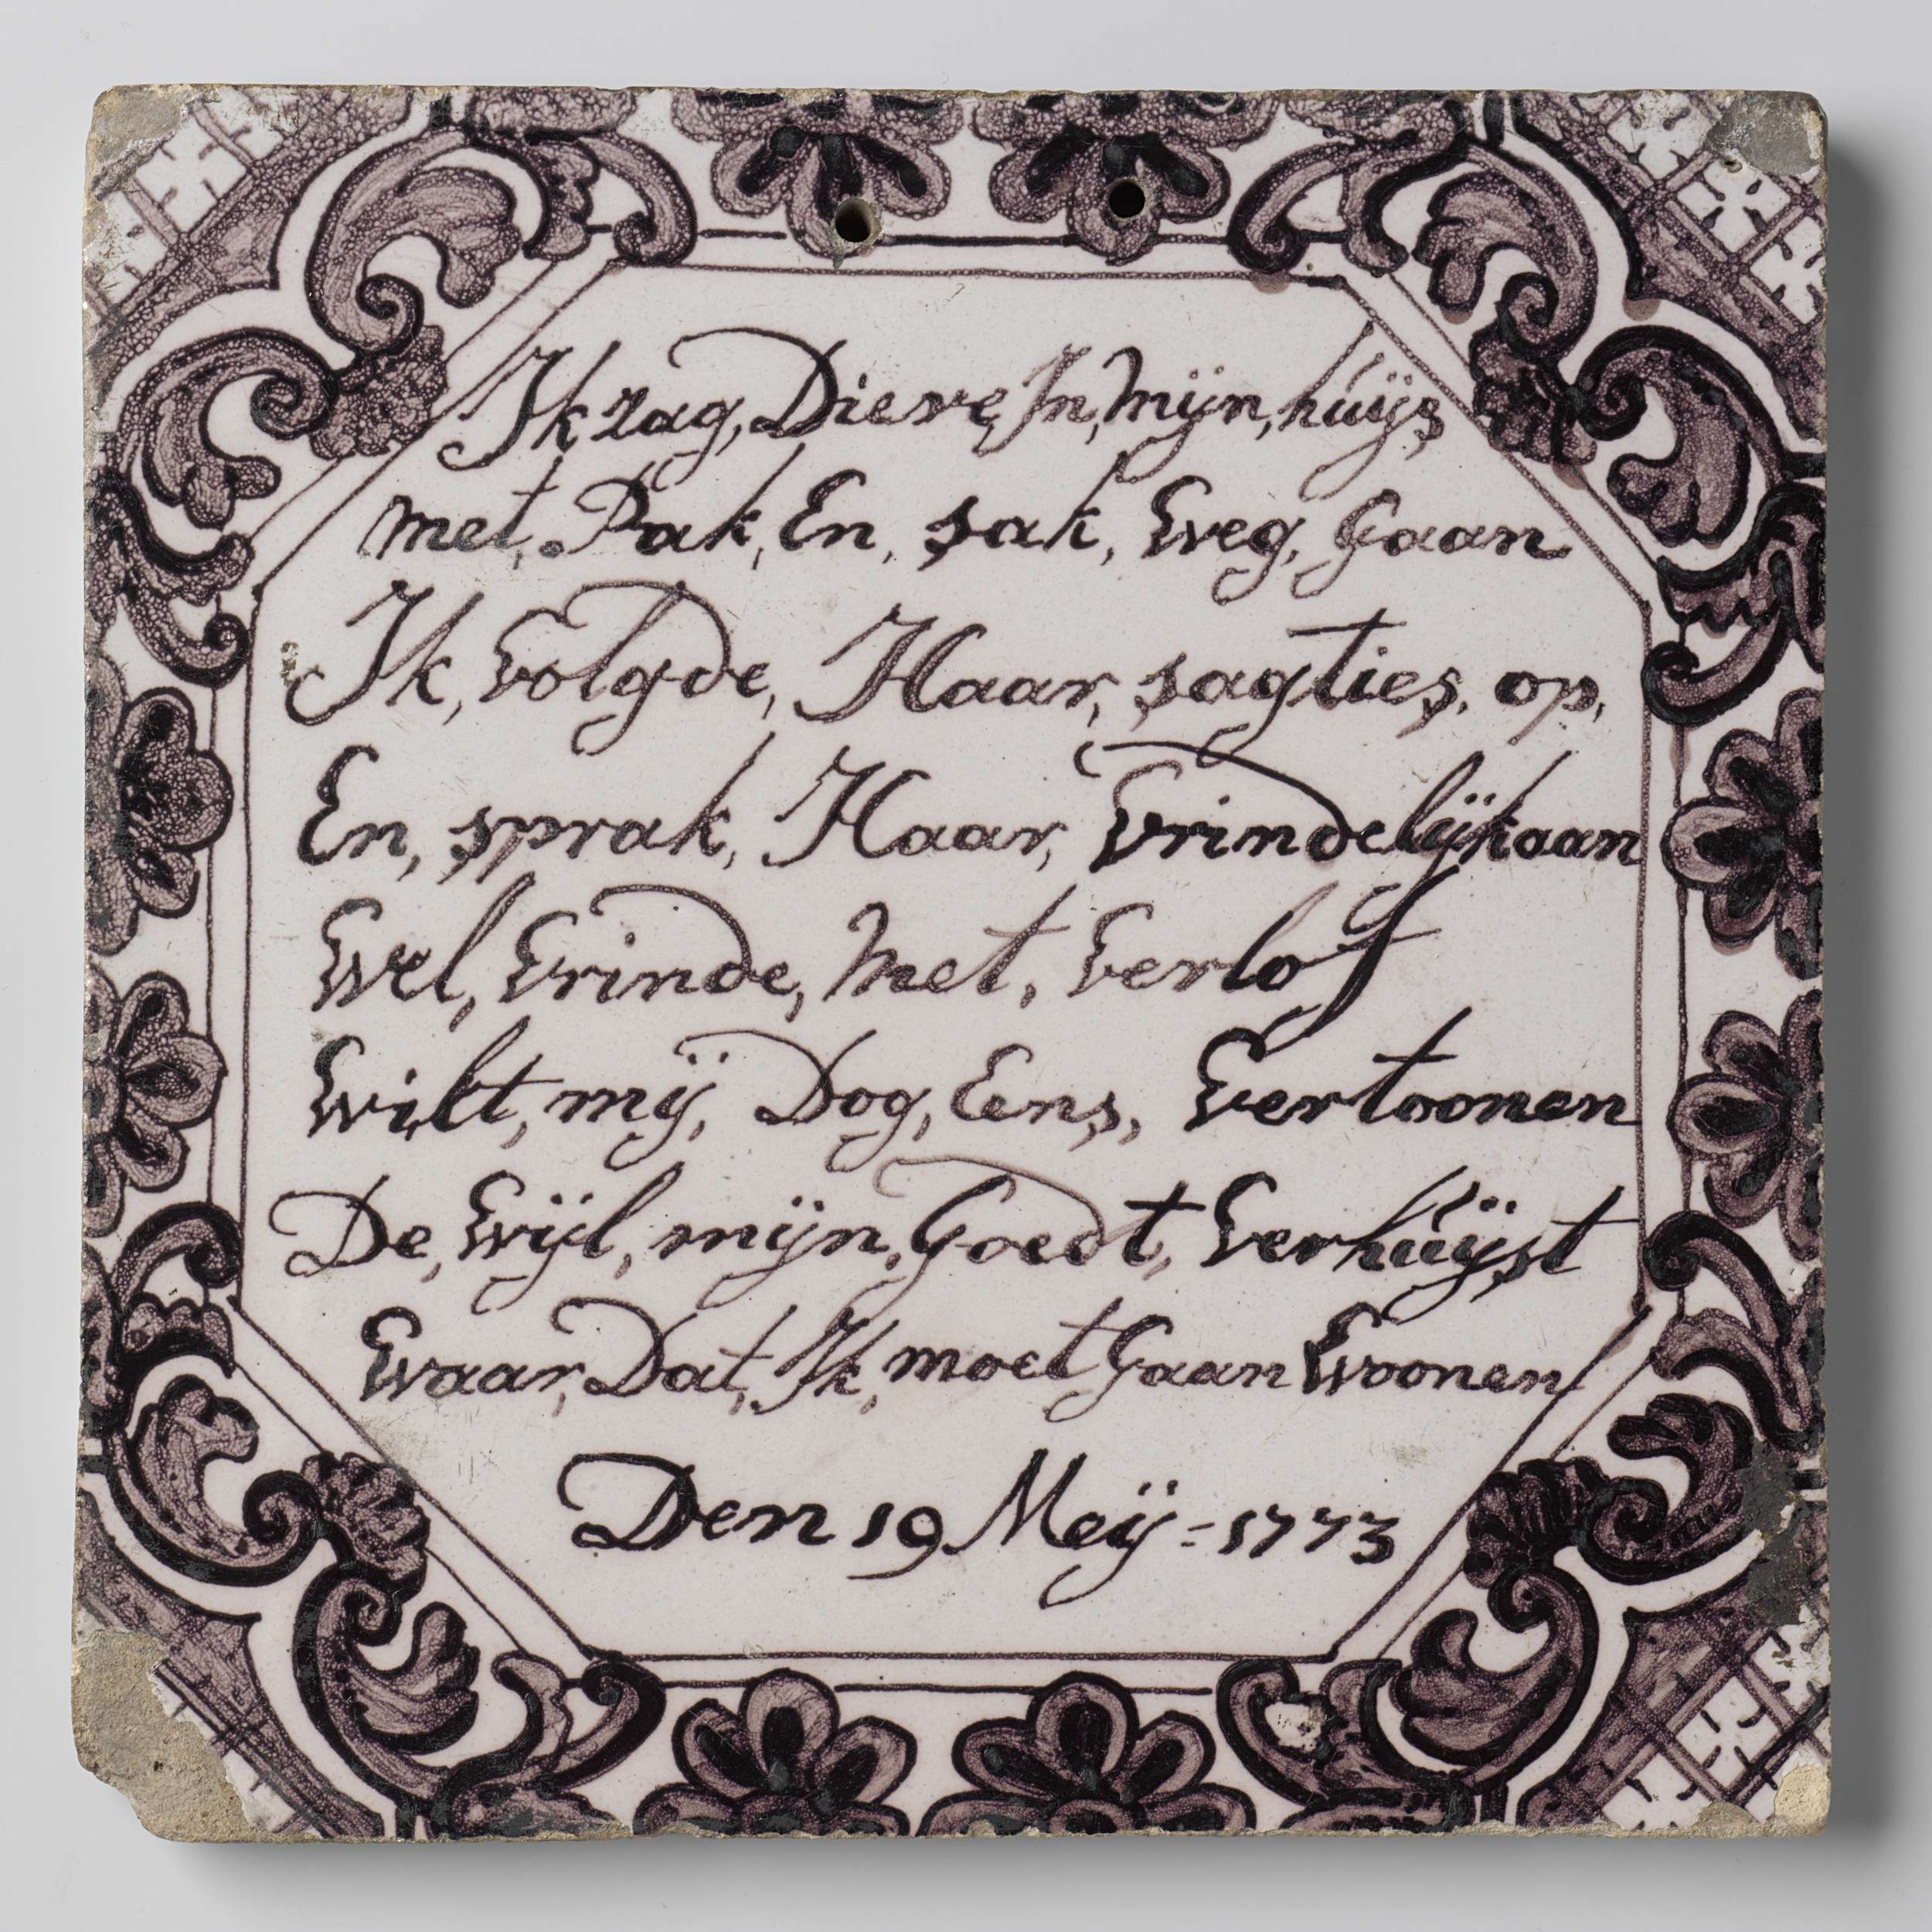 Ik zag, Dieve, In, Mijn, huijs
met, Pak, En, sak, Weg, Gaan
Ik, Volgde, Haar, sagties, op,
En, sprak, Haar, Vrindelijkaan
Wel, Vrinde, Met, Verlof
Wilt, mij, Dog, Eens, Vertoonen
De, Wijl, mijn, Goedt, Verhuijst
Waar, Dat, Ik, moet Gaan Woonen
Den 19 Meij - 1773